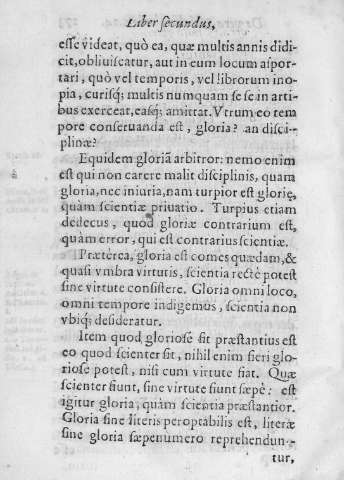 Liber secundus,
esse videat, quò ea, quæ multis annis didi-
cit, obliuiscatur, aut in eum locum aspor-
tari, quò vel temporis, vel librorum ino-
pia, curisq; multis numquam se se in arti-
bus exerceat, easq; amittat. Vtrum eo tem
pore conseruanda est, gloria? an disci-
plinæ?
Equidem gloriã arbitror: nemo enim
est qui non carere malit disciplinis, quam
gloria, nec iniuria, nam turpior est glorię,
quàm scientiæ priuatio. Turpius etiam
dedecus, quod gloriæ contrarium est,
quàm error, qui est contrarius scientiæ.
Præterea, gloria est comes quædam, &
quasi vmbra virtutis, scientia rectè potest
sine virtute consistere. Gloria omni loco,
omni tempore indigemus, scientia non
vbiq; desideratur.
Item quod gloriosè fit præstantius est
eo quod scienter fit, nihil enim fieri glo-
riosè potest, nisi cum virtute fiat. Quæ
scienter fiunt, sine virtute fiunt sæpè: est
igitur gloria, quàm scientia præstantior.
Gloria sine literis peroptabilis est, literæ
sine gloria sæpenumero reprehendun-
tur,